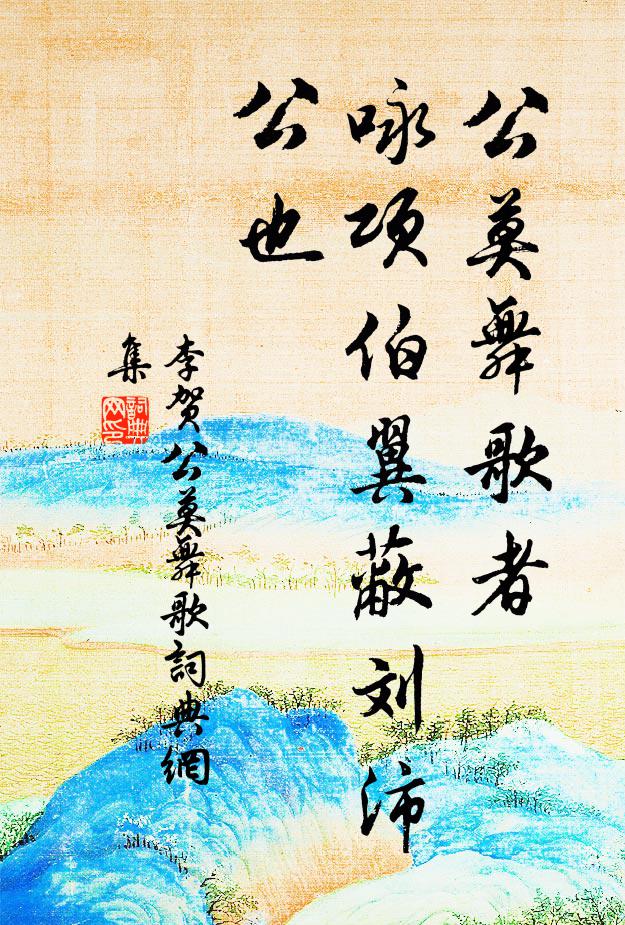 公莫舞歌者
咏项伯翼蔽刘沛
公也
李贺公莫舞歌詞典網
集
詞典网印